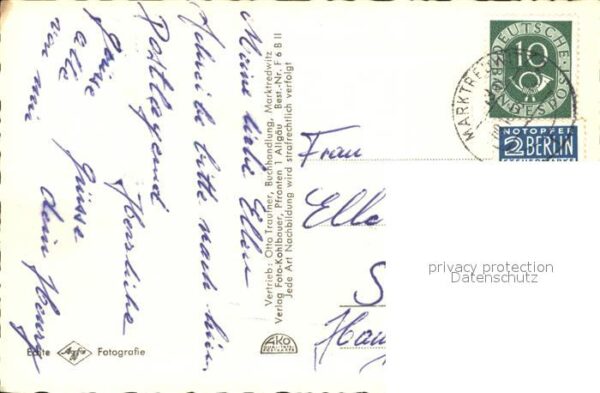 Meine liebe Ellen
Schreibe bitte nach hier
Postlagernd
Herzliche
Grüsse
dein Henry
Grüsse
alle
von mir
Vertrieb: Otto Traufner, Buchhandlung, Marktredwitz
Verlag Foto-Kohlbauer, Pfronten 1 Allgäu Best.-Nr. F 6 B II
Jede Art Nachbildung wird strafrechtlich verfolgt
DEUTSCHE
10
BUNDESPOST
MARKTRE
NOTOPFER
2 BERLIN
STEUERMARKE
Frau
Elle
S
Han
privacy protection
Datenschutz
Echte Agfa Fotografie
AKO